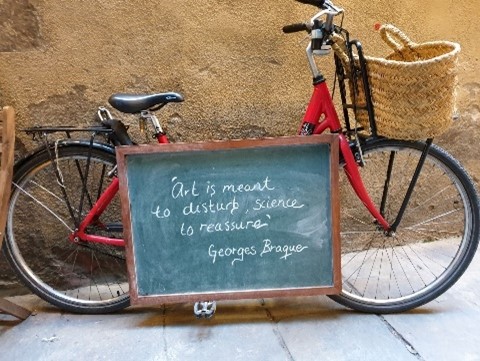 "Art is meant
to disturb, science
to reassure"
Georges Braque